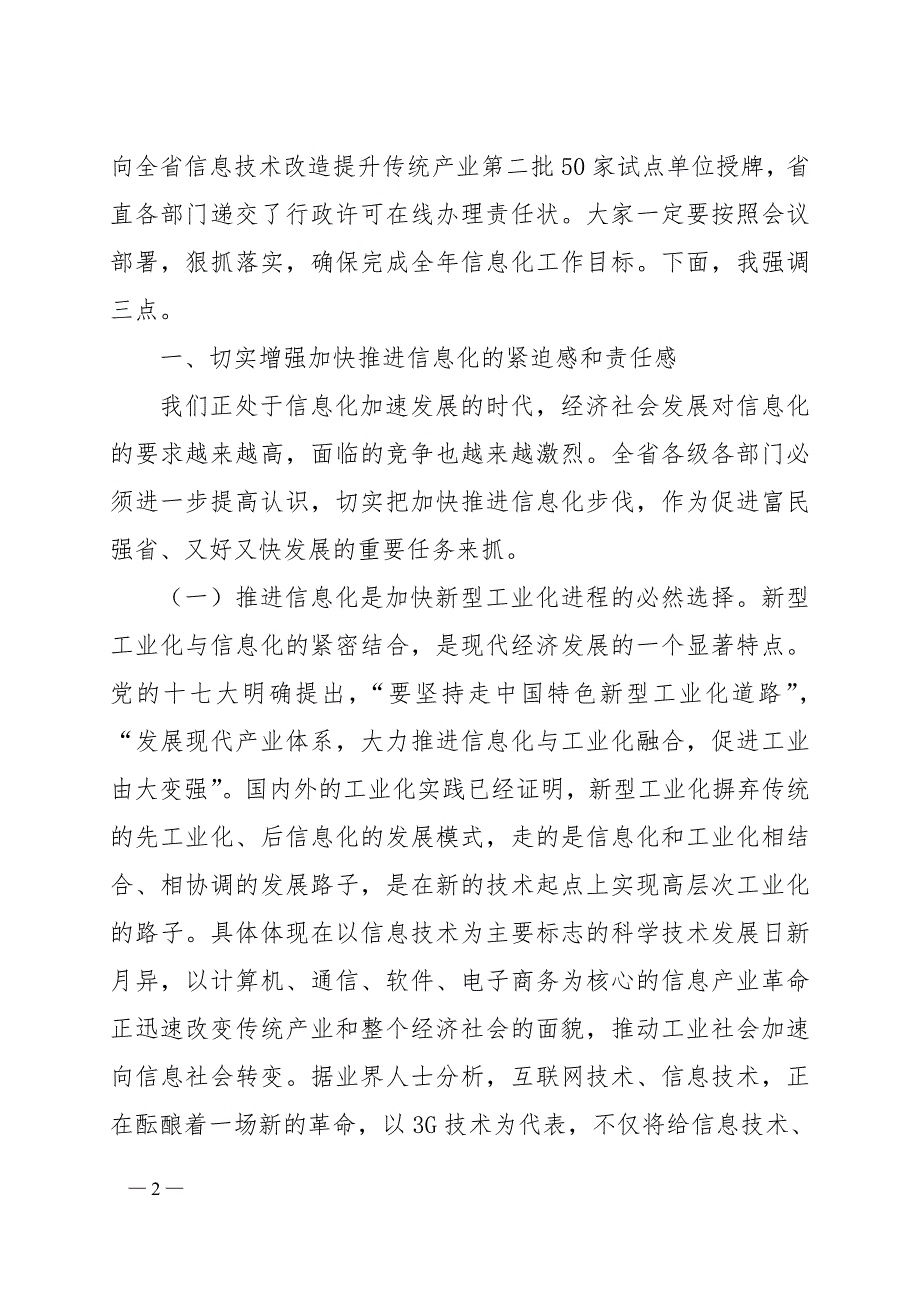 向全省信息技术改造提升传统产业第二批50家试点单位授牌，省
直各部门递交了行政许可在线办理责任状。大家一定要按照会议
部署，狠抓落实，确保完成全年信息化工作目标。下面，我强调
三点。
一、切实增强加快推进信息化的紧迫感和责任感
我们正处于信息化加速发展的时代，经济社会发展对信息化
的要求越来越高，面临的竞争也越来越激烈。全省各级各部门必
须进一步提高认识，切实把加快推进信息化步伐，作为促进富民
强省、又好又快发展的重要任务来抓。
（一）推进信息化是加快新型工业化进程的必然选择。新型
工业化与信息化的紧密结合，是现代经济发展的一个显著特点。
党的十七大明确提出，“要坚持走中国特色新型工业化道路”，
“发展现代产业体系，大力推进信息化与工业化融合，促进工业
由大变强”。国内外的工业化实践已经证明，新型工业化摒弃传统
的先工业化、后信息化的发展模式，走的是信息化和工业化相结
合、相协调的发展路子，是在新的技术起点上实现高层次工业化
的路子。具体体现在以信息技术为主要标志的科学技术发展日新
月异，以计算机、通信、软件、电子商务为核心的信息产业革命
正迅速改变传统产业和整个经济社会的面貌，推动工业社会加速
向信息社会转变。据业界人士分析，互联网技术、信息技术，正
在酝酿着一场新的革命，以3G技术为代表，不仅将给信息技术、
—2—